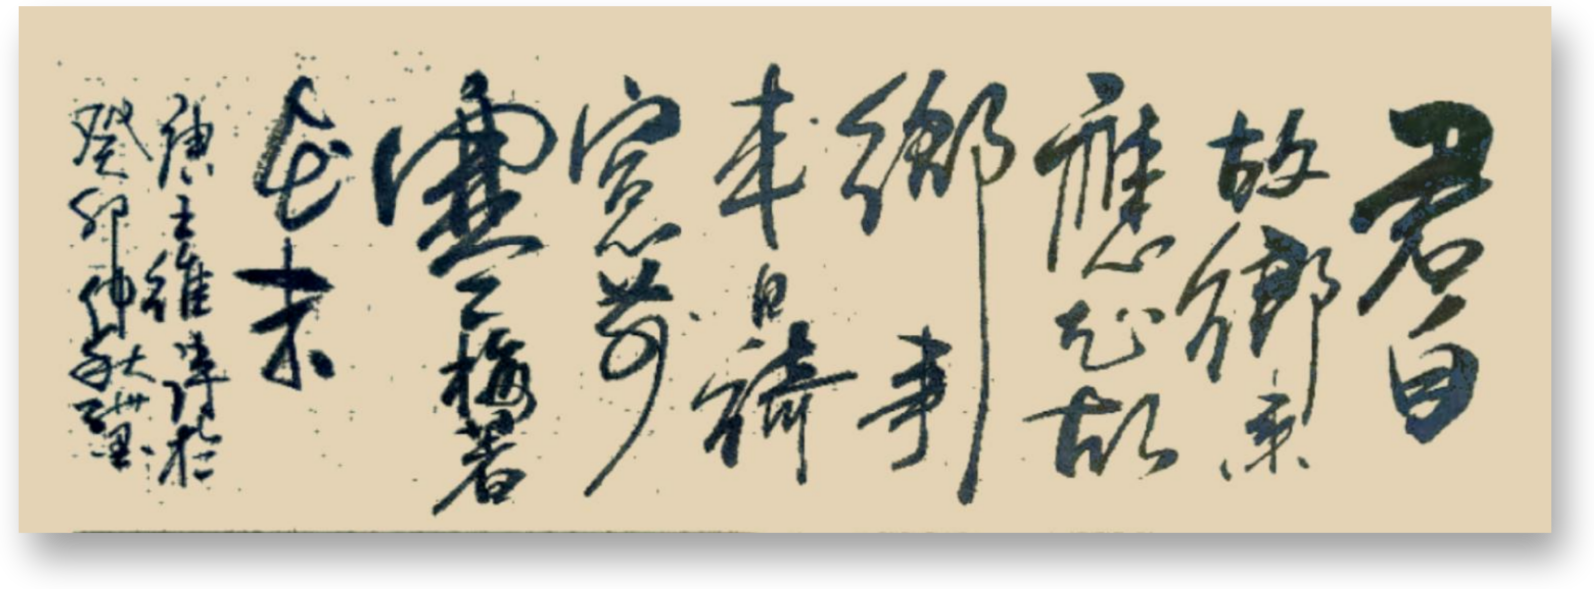 君自
故鄉来
應知故
鄉事
来日綺
窗前
寒梅著
花未
唐王維詩於
癸卯仲秋